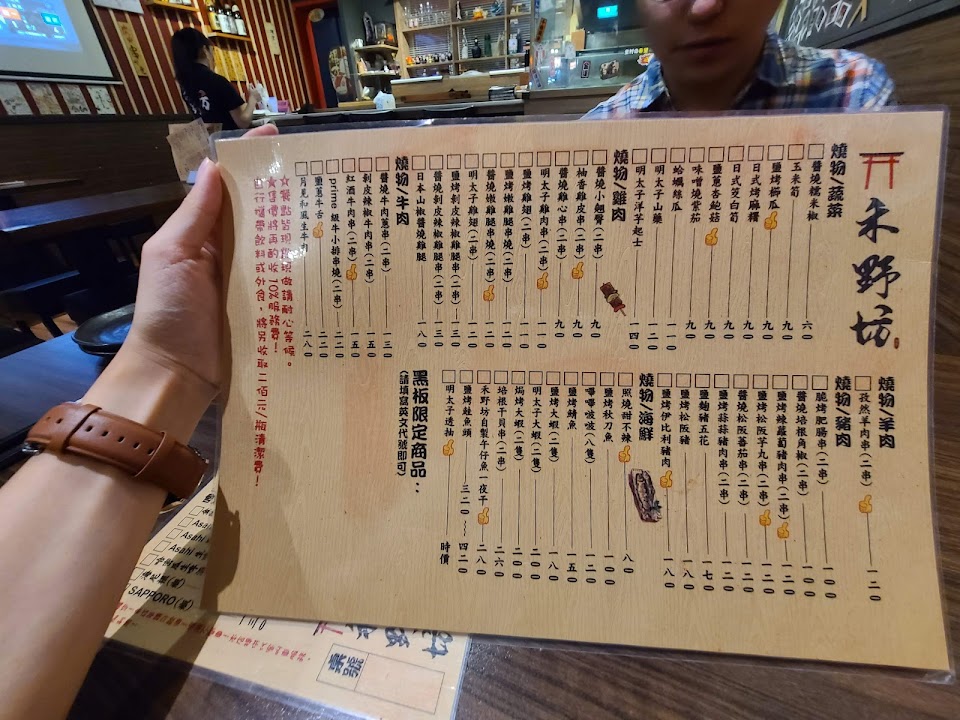 禾野坊
燒物/蔬菜
醬燒糯米椒 六0
玉米筍 九0
鹽烤櫛瓜 九0
日式烤麻糬 九0
日式茭白筍 九0
鹽蔥杏鮑菇 九0
味噌燒紫茄 九0
蛤蠣絲瓜 一一0
明太子山藥 一二0
明太子洋芋起士 一四0
燒物/雞肉
醬燒小翹臀(二串) 九0
柚香雞皮串(二串) 九0
醬燒雞心串(二串) 九0
明太子雞肉串(二串) 一一0
鹽烤雞翅(二串) 一一0
鹽烤嫩雞腿串(二串) 一一0
醬燒嫩雞腿串燒(二串) 一一0
明太子雞翅(二串) 一二0
鹽烤剝皮辣椒雞腿串(二串) 一三0
醬燒剝皮辣椒雞腿串(二串) 一三0
日本山椒醬燒雞腿 一八0
燒物/牛肉
醬燒牛肉蔥串(二串) 一三0
剝皮辣椒牛肉串(二串) 一五0
紅酒牛肉串(二串) 一五0
prime 級牛小排串燒(二串) 二二0
鹽蔥牛舌 二二0
月見和風生牛肉 二八0
☆餐點皆現點現做請耐心等候。
★售價將再酌收10%服務費!
自行攜帶飲料或外食,將另收取二佰元/瓶清潔費!
燒物/羊肉
孜然羊肉串(二串) 一二0
燒物/豬肉
脆烤肥腸串(二串) 一一0
醬燒培根角椒(二串) 一一0
鹽烤辣蘿蔔豬肉串(二串) 一二0
鹽烤松阪芋丸串(二串) 一二0
醬燒松阪蕃茄串(二串) 一二0
鹽烤蒜蒜豬肉串(二串) 一二0
鹽麴豬五花 一七0
鹽烤松阪豬 一八0
鹽烤伊比利豬肉 一八0
燒物/海鮮
照燒甜不辣 八0
鹽烤秋刀魚 一00
嗶嗶啵(八隻) 一二0
鹽烤鯖魚 一五0
鹽烤大蝦(二隻) 一八0
明太子大蝦(二隻) 二00
焗烤大蝦(二隻) 二00
培根干貝串(二串) 二六0
禾野坊自製午仔魚一夜干 二八0
鹽烤鮭魚頭 三二0~四二0
明太子透抽 時價
黑板限定商品:
(請填寫英文代號即可)
Asahi
SAPPORO(罐)
桌號